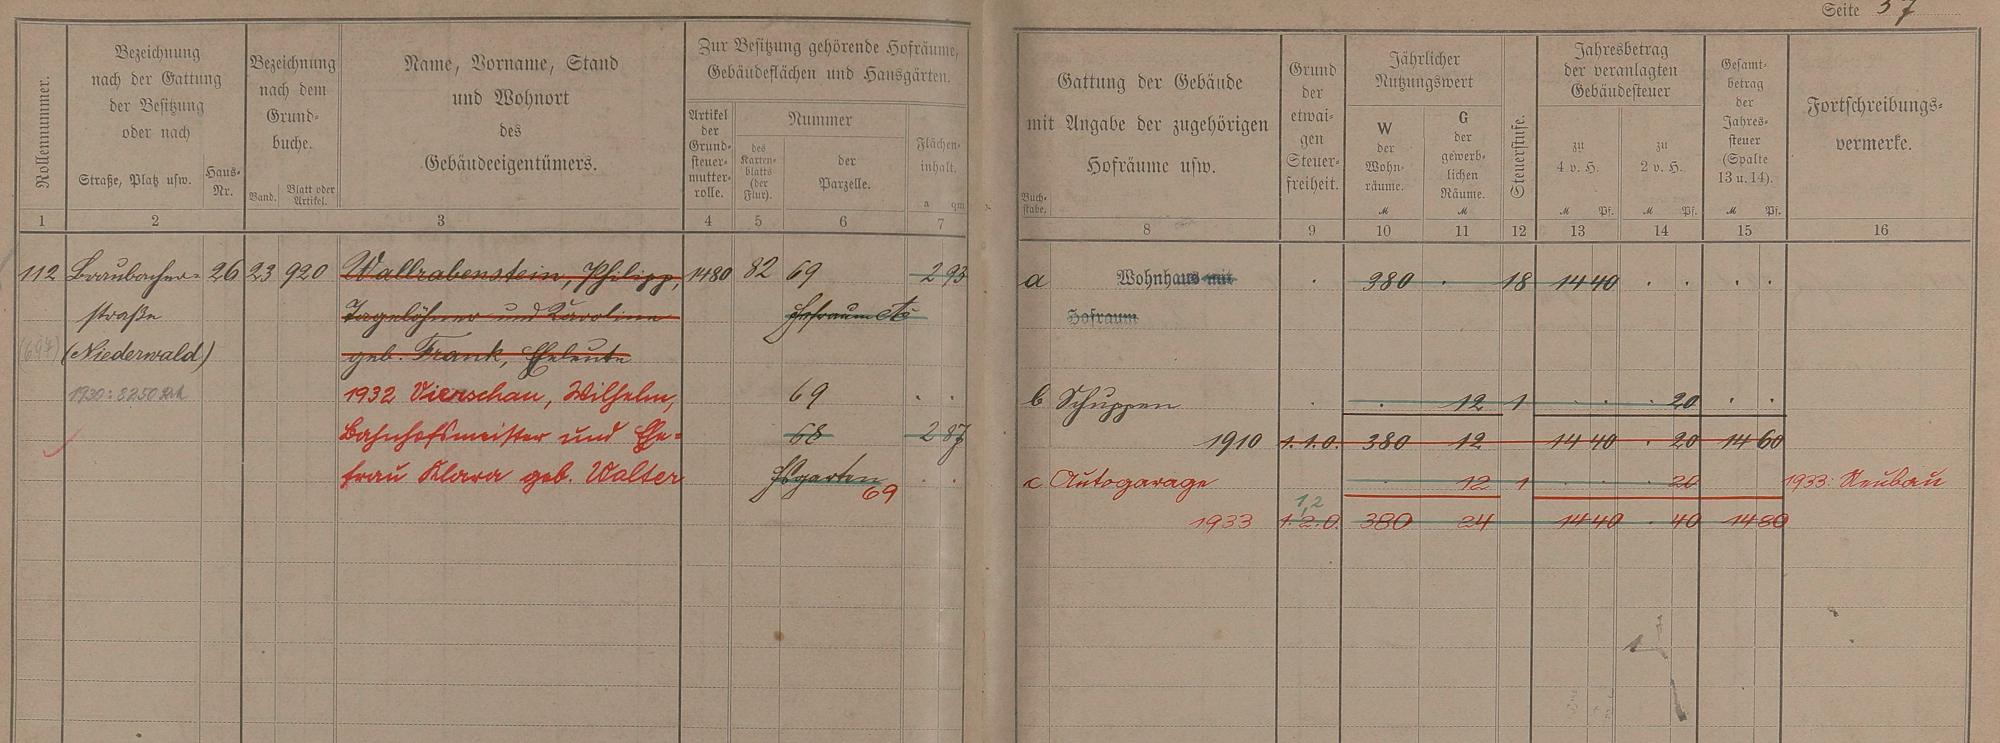 Seite 37
Rollennummer.
Bezeichnung
nach der Gattung
der Besitzung
oder nach
Straße, Platz usw.
Haus-
Nr.
Bezeichnung
nach dem
Grund-
buche.
Band.
Blatt oder
Artikel.
Name, Vorname, Stand
und Wohnort
des
Gebäudeeigentümers.
Zur Besitzung gehörende Hofräume,
Gebäudeflächen und Hausgärten.
Artikel
der
Grund-
steuer-
mutter-
rolle.
Nummer
des
Karten-
blatts
(der
Flur).
der
Parzelle.
Flächen-
inhalt.
a qm
Buch-
stabe.
Gattung der Gebäude
mit Angabe der zugehörigen
Hofräume usw.
Grund
der
etwai-
gen
Steuer-
freiheit.
Jährlicher
Nutzungswert
W
der
Wohn-
räume.
M
G
der
gewerb-
lichen
Räume.
M
Steuerstufe.
Jahresbetrag
der veranlagten
Gebäudesteuer
zu
4 v. H.
M Pf.
zu
2 v. H.
M Pf.
Gesamt-
betrag
der
Jahres-
steuer
(Spalte
13 u. 14).
M Pf.
Fortschreibungs-
vermerke.
1 2 3 4 5 6 7 8 9 10 11 12 13 14 15 16
112 Braubacher- 26 23 920 Wallrabenstein, Philipp, 1480 82 69 2 93 a Wohnhaus mit . 380 . 18 14 40 . . . .
straße Tagelöhner und Karoline Hofraum Hofraum
(697) (Niederwald) geb. Frank, Eheleute
1930: 8250 1932 Vierschau, Wilhelm, 69 . . b Schuppen . . 12 1 . . . 20 . .
Bahnhofsmeister und Ehe- 68 2 87 1910 1.1.0. 380 12 14 40 . 20 14 60
frau Klara geb. Walter Hsgarten . . c Autogarage . 12 1 . . . 20 1933: Neubau
69
1,2
1933 1.2.0. 380 24 14 40 . 40 14 80